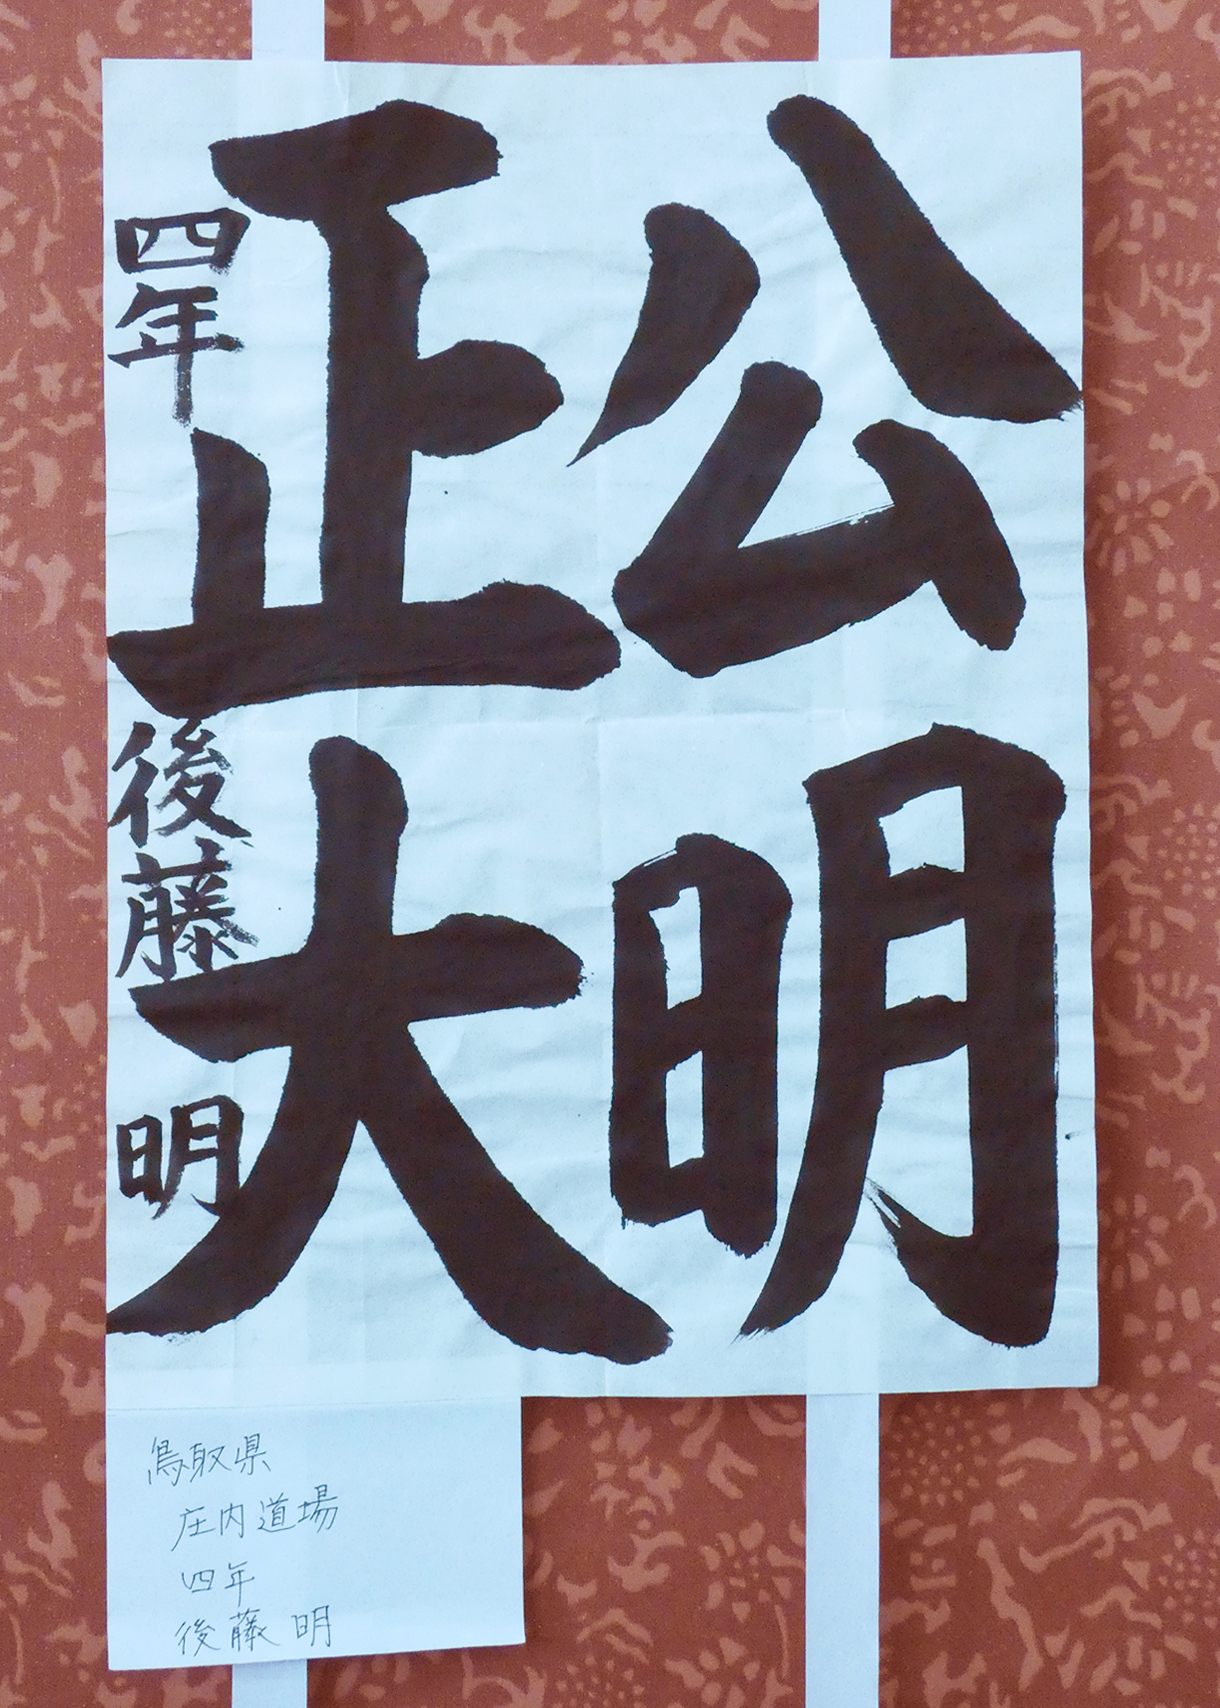 公明
正大
四年 後藤 明
鳥取県
庄内道場
四年
後藤 明